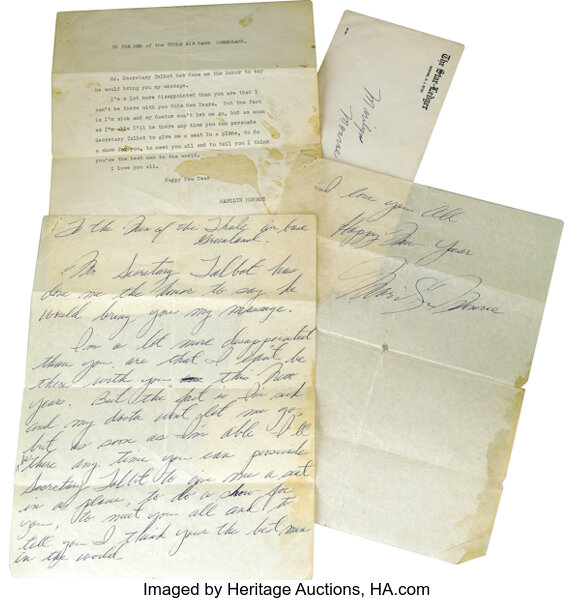 TO THE MEN OF the THULE AIR BASE GREENLAND.
Mr. Secretary Talbot has done me the honor to say
he would bring you my message.
I'm a lot more disappointed than you are that I
can't be there with you this New Years. But the fact
is I'm sick and my doctor won't let me go, but as soon
as I'm able I'll be there any time you can persuade
Secretary Talbot to give me a seat in a plane, to do
a show for you, to meet you all and to tell you I think
you're the best men in the world.
I love you all.
Happy New Year
MARILYN MONROE
The Star-Ledger
Marilyn
Monroe
I love you All
Happy New Year
Marilyn Monroe
To the Men of the Thule air base
Greenland.
Mr. Secretary Talbot has
done me the honor to say he
would bring you my message.
I'm a lot more disappointed
than you are that I cant be
there with you this New
years. But the fact is I'm sick
and my doctor wont let me go,
but as soon as I'm able I'll
be there any time you can persuade
Secretary Talbot to give me a seat
in a plane, to do a show for
you, to meet you all and to
tell you I think your the best men
in the world
Imaged by Heritage Auctions, HA.com